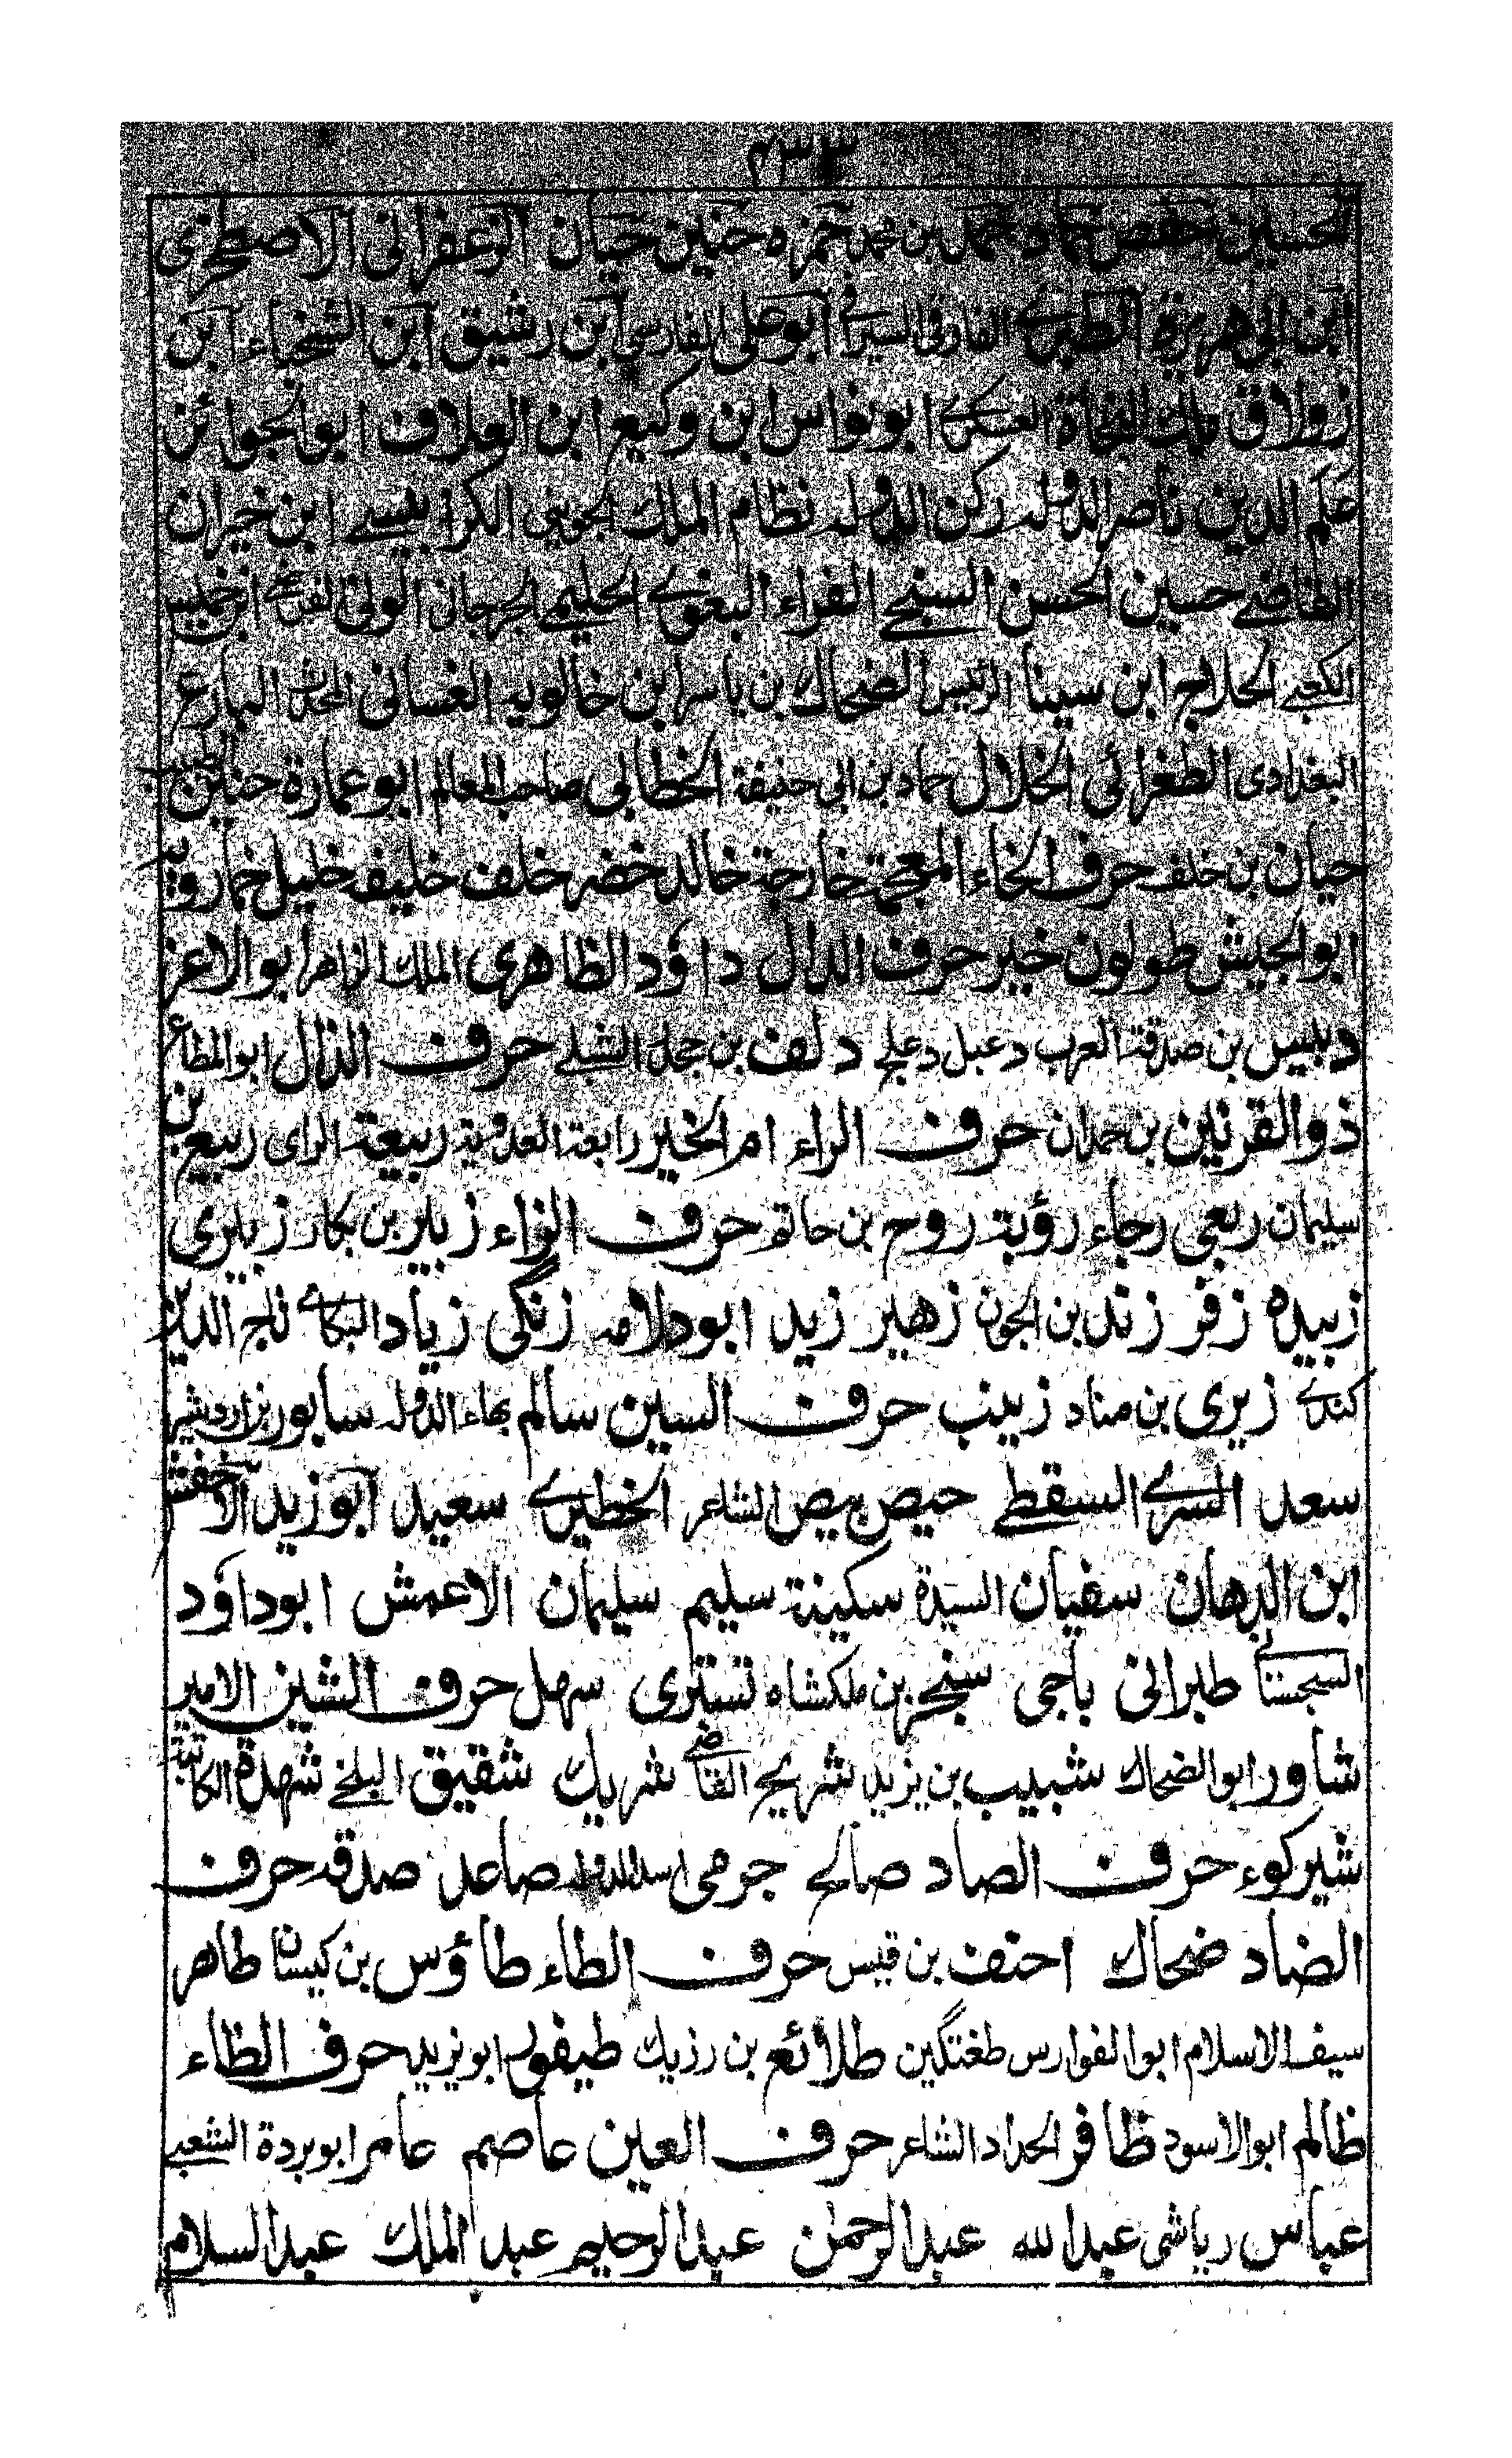 ۴۳۳
الحسين حفص حماد حمل بن محمد حمزه حنين حيان الزعفرانى الاصطخرى
ابن ابى هريرة الطبرے الفارقى السيرافے ابو على الفارسى ابن رشيق ابن الشخباء ابن
زولاق ملك النحاة العسكرے ابو نواس ابن وكيع ابن العلاف ابو الجوائز
علم الدين ناصر الدولہ ركن الدولہ نظام الملك الجوينى الكرابيسے ابن خيران
القاضے حسين الحسن السنجے الفراء البغوے الحليمے الجرجانى الونى ابن خميس
الكعبے الحلاج ابن سينا الرئيس الضحاك بن ياسر ابن خالويہ الغسانى البارع
البغدادى الطغرائى الخلال حماد بن ابى حنيفة الخطابى صاحب المعالم ابو عمارة حنين الطبيب
حيان بن خلف حرف الخاء المعجمة خارجة خالد خضر خلف خليفہ خليل خمارويہ
ابو الجيش طولون خير حرف الدال داؤد الظاهرى الملك الزاهر ابو الاعز
دبيس بن صدقة العرب دعبل دعلج دلف بن جحدر الشبلے حرف الذال ابو المطاع
ذو القرنين بن حمدان حرف الراء ام الخير رابعة العدوية ربيعة الراى ربيع بن
سليمان ربعى رجاء رؤبة روح بن حاتم حرف الزاء زبير بن بكار زبيرى
زبيده زفر زند بن الجون زهير زيد ابو دلامہ زنگى زياد البكائے تاج الدين
كندے زيرى بن مناد زينب حرف السين سالم بهاء الدولہ سابور بن اردشير
سعد السرے السقطے حيص بيص الشاعر الخطيرے سعيد ابو زيد الاخفش
ابن الدهان سفيان السيدة سكينة سليم سليمان الاعمش ابو داؤد
السجستانے طبرانى باجى سنجر بن ملكشاه تسترى سهل حرف الشين الامير
شاور ابو الضحاك شبيب بن يزيد شريح القاضے شريك شقيق البلخے شهدة الكاتبة
شيركوء حرف الصاد صالح جرمى اسد الدولہ صاعد صدقہ حرف
الضاد ضحاك احنف بن قيس حرف الطاء طاؤس بن كيسان طاهر
سيف الاسلام ابو الفوارس طغتگين طلائع بن رزيك طيفور ابو يزيد حرف الظاء
ظالم ابو الاسود ظافر الحداد الشاعر حرف العين عاصم عامر ابو بردة الشعبے
عباس رياشى عبد الله عبد الرحمن عبد الرحيم عبد الملك عبد السلام